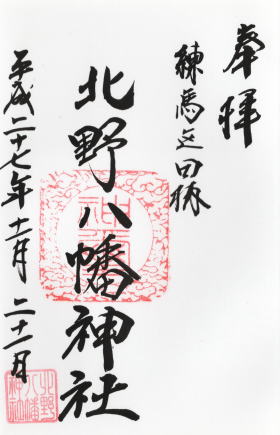 奉拝
練馬区田柄
北野八幡神社
平成二十七年十一月二十一日
北野
八幡
神社